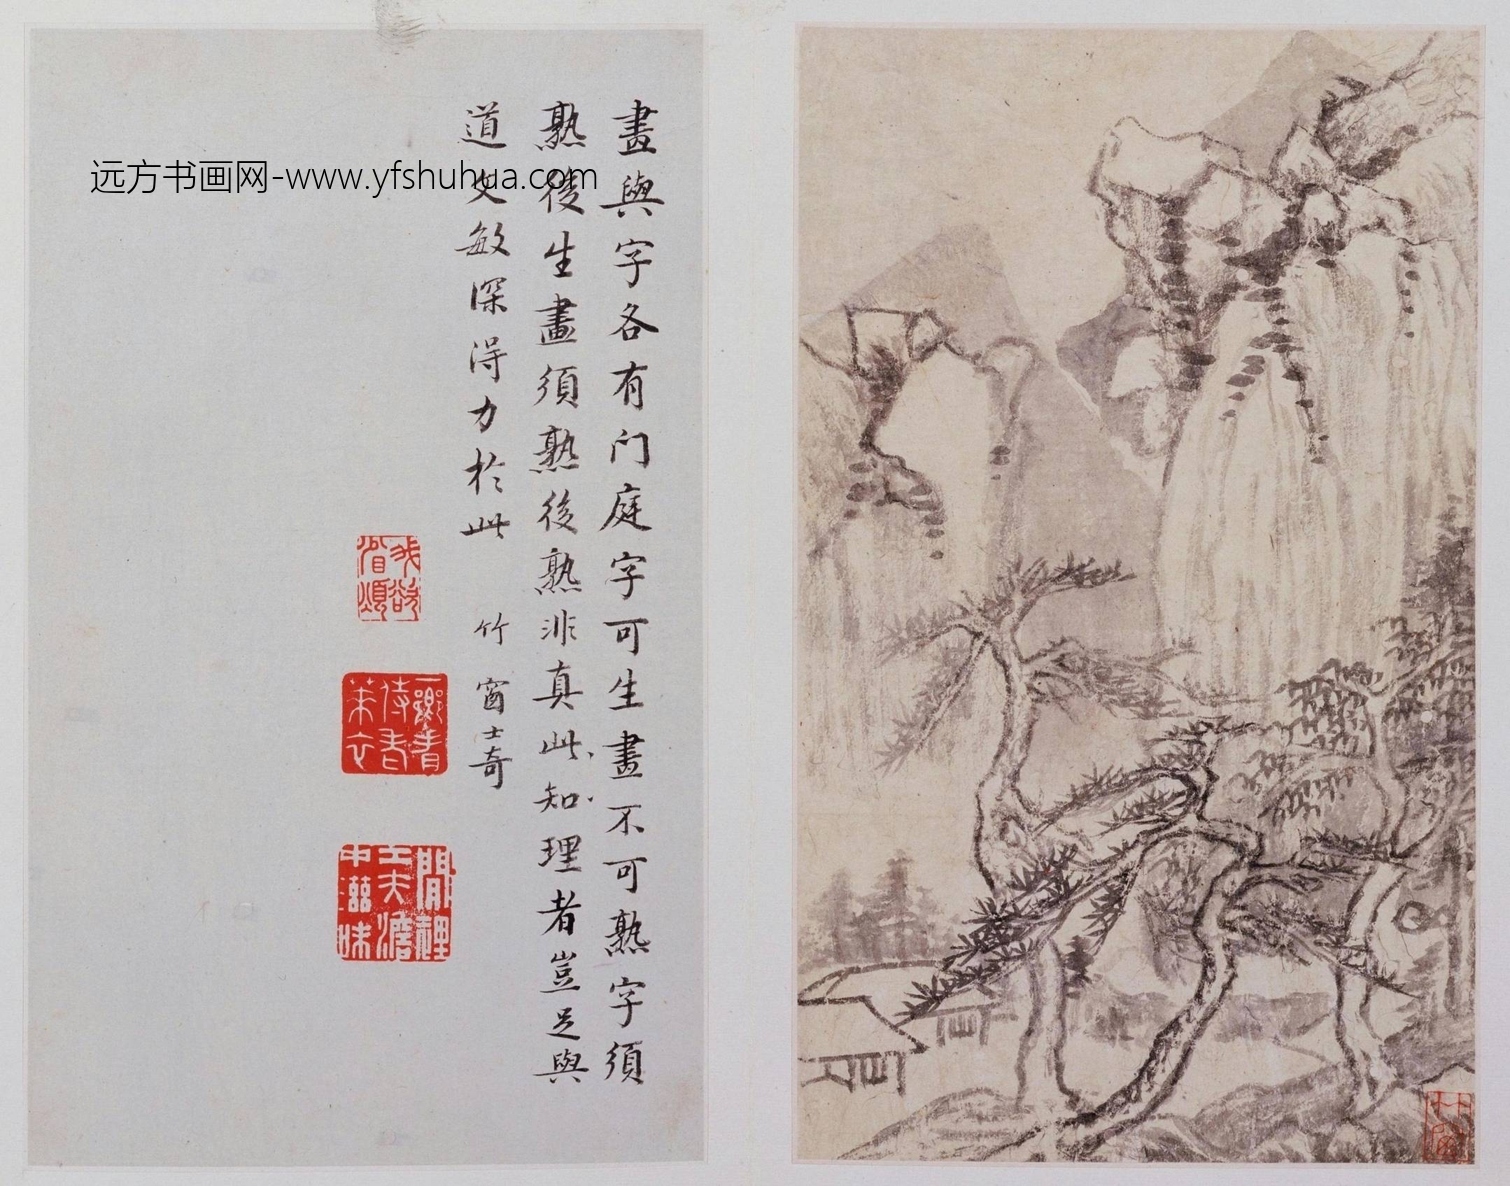 畫與字各有门庭字可生畫不可熟字須
熟後生畫須熟後熟非真此知理者豈足與
道文敏深得力於此 竹窗士奇
远方书画网-www.yfshuhua.com
閒裡
工夫澹
中滋味
竹窗